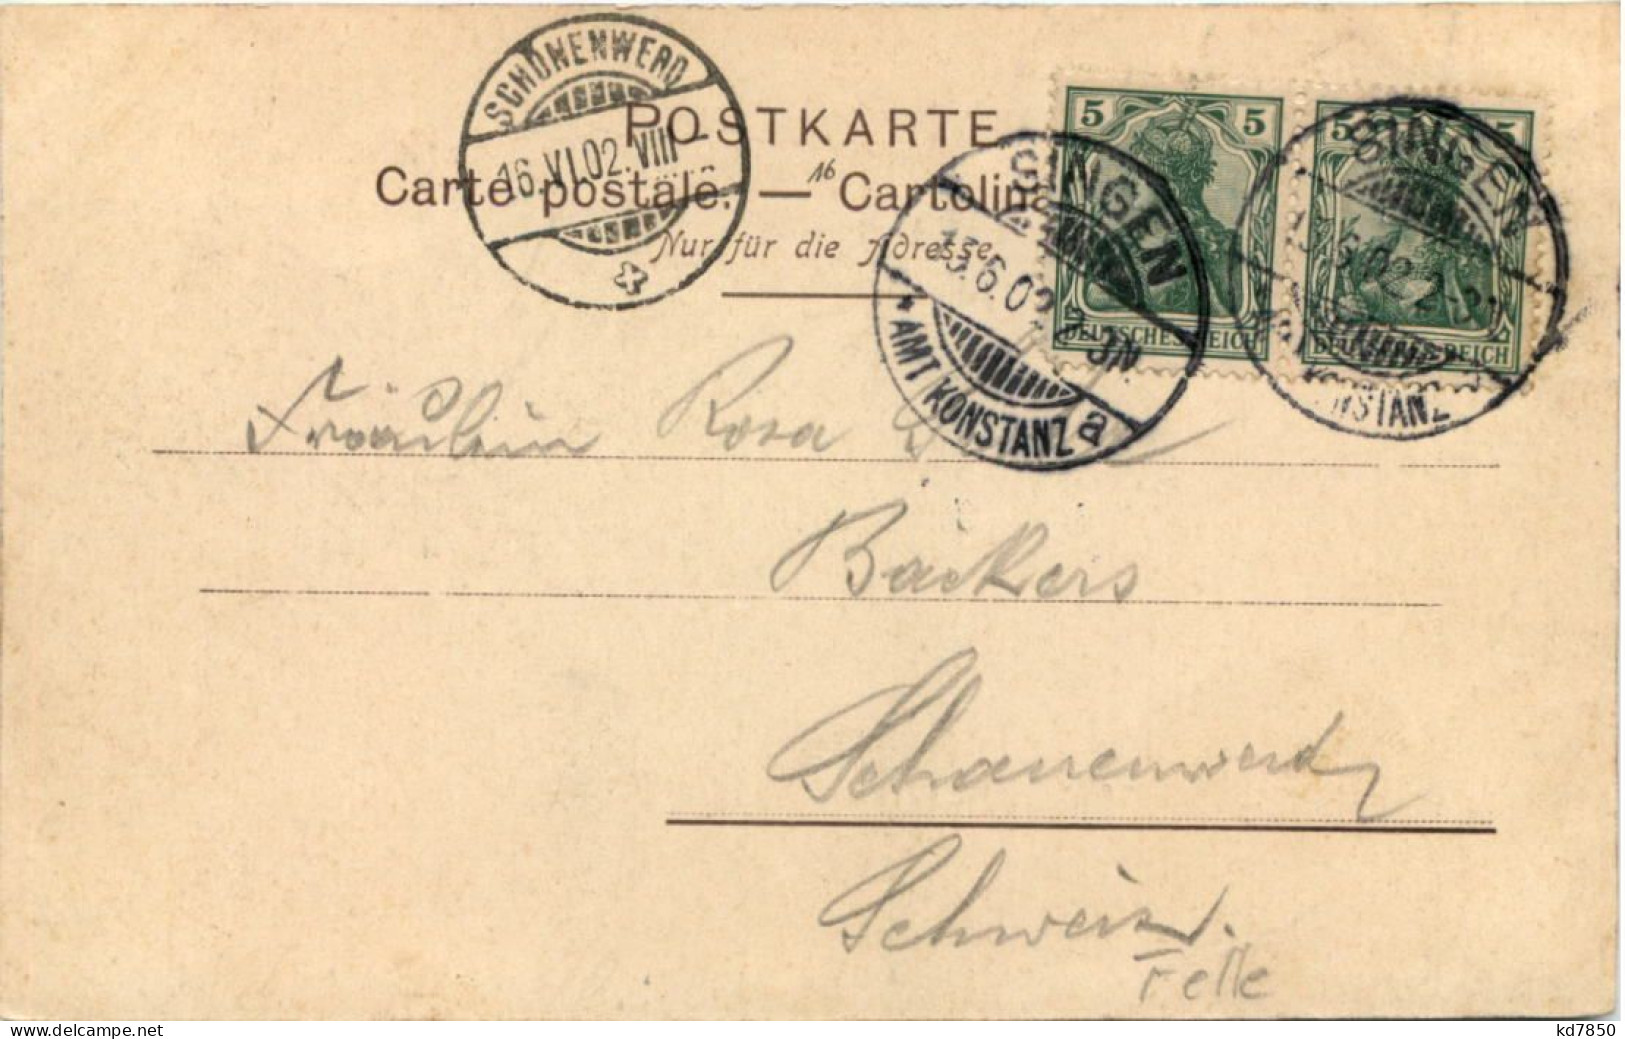 SCHÖNENWERD
16.VI.02.VIII
POSTKARTE
Carte postale. — 16 Cartolina
Nur für die Adresse
5 5
DEUTSCHES REICH
5 5
REICH
SINGEN
15.6.02. 2-3N
* AMT KONSTANZ a
SINGEN
6.02. 2-3
NSTANZ
Fräulein Rosa
Bäckers
Schönenwerd
Schweiz.
Felle
kd7850